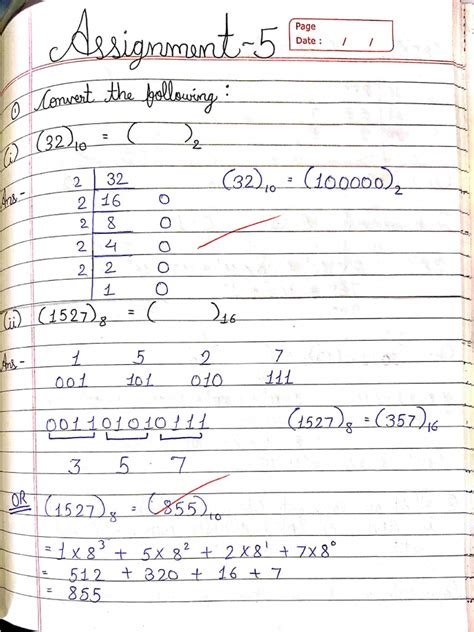 Assignment-5
Page
Date : / /
① Convert the following :
(i) (32)₁₀ = ( )₂
Ans - 2 32 (32)₁₀ = (100000)₂
2 16 0
2 8 0
2 4 0
2 2 0
1 0
(ii) (1527)₈ = ( )₁₆
Ans - 1 5 2 7
001 101 010 111
001101010111 (1527)₈ = (357)₁₆
3 5 7
OR (1527)₈ = (855)₁₀
= 1 x 8³ + 5x 8² + 2 x 8¹ + 7x8⁰
= 512 + 320 + 16 + 7
= 855